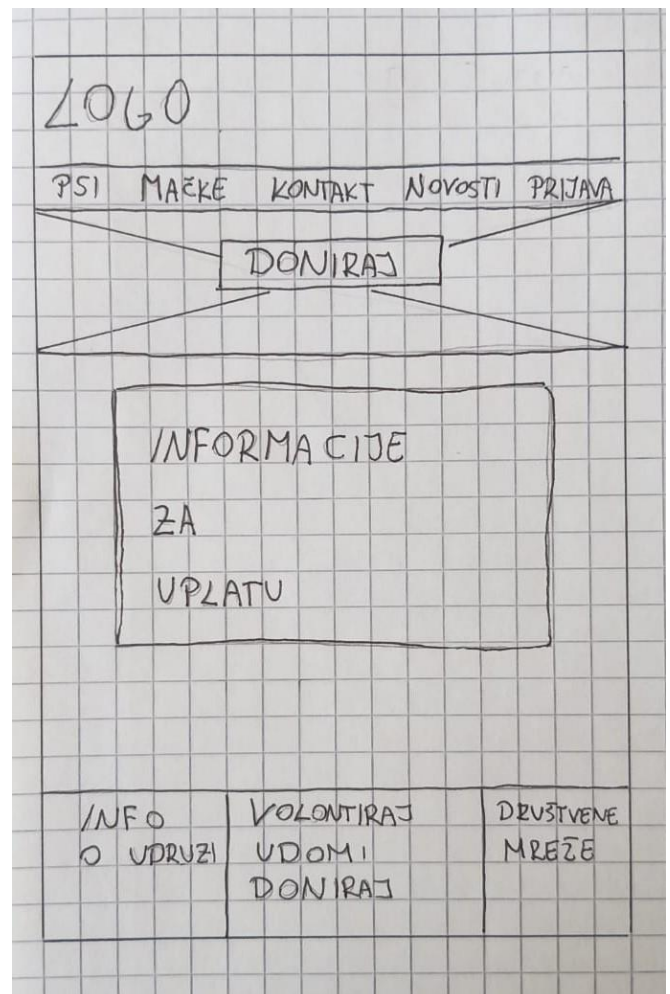 LOGO
PSI MAČKE KONTAKT NOVOSTI PRIJAVA
DONIRAJ
INFORMACIJE
ZA
UPLATU
INFO
O UDRUZI
VOLONTIRAJ
UDOMI
DONIRAJ
DRUŠTVENE
MREŽE